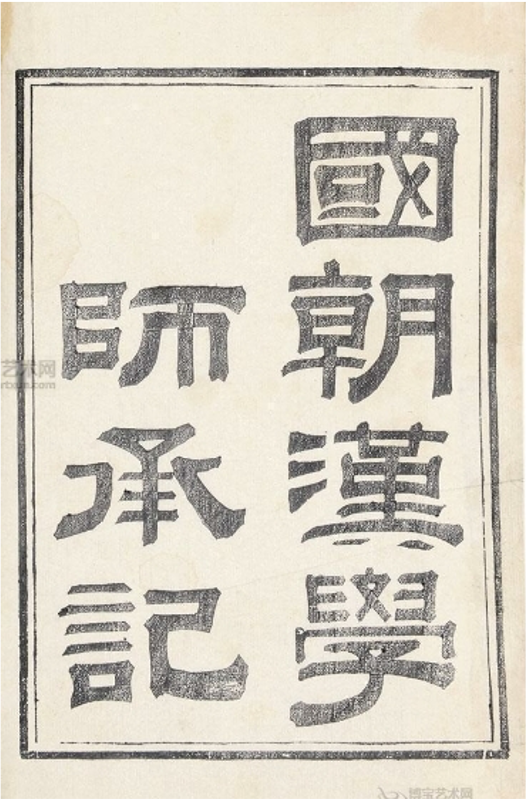 國朝漢學
師承記
艺术网
博宝艺术网